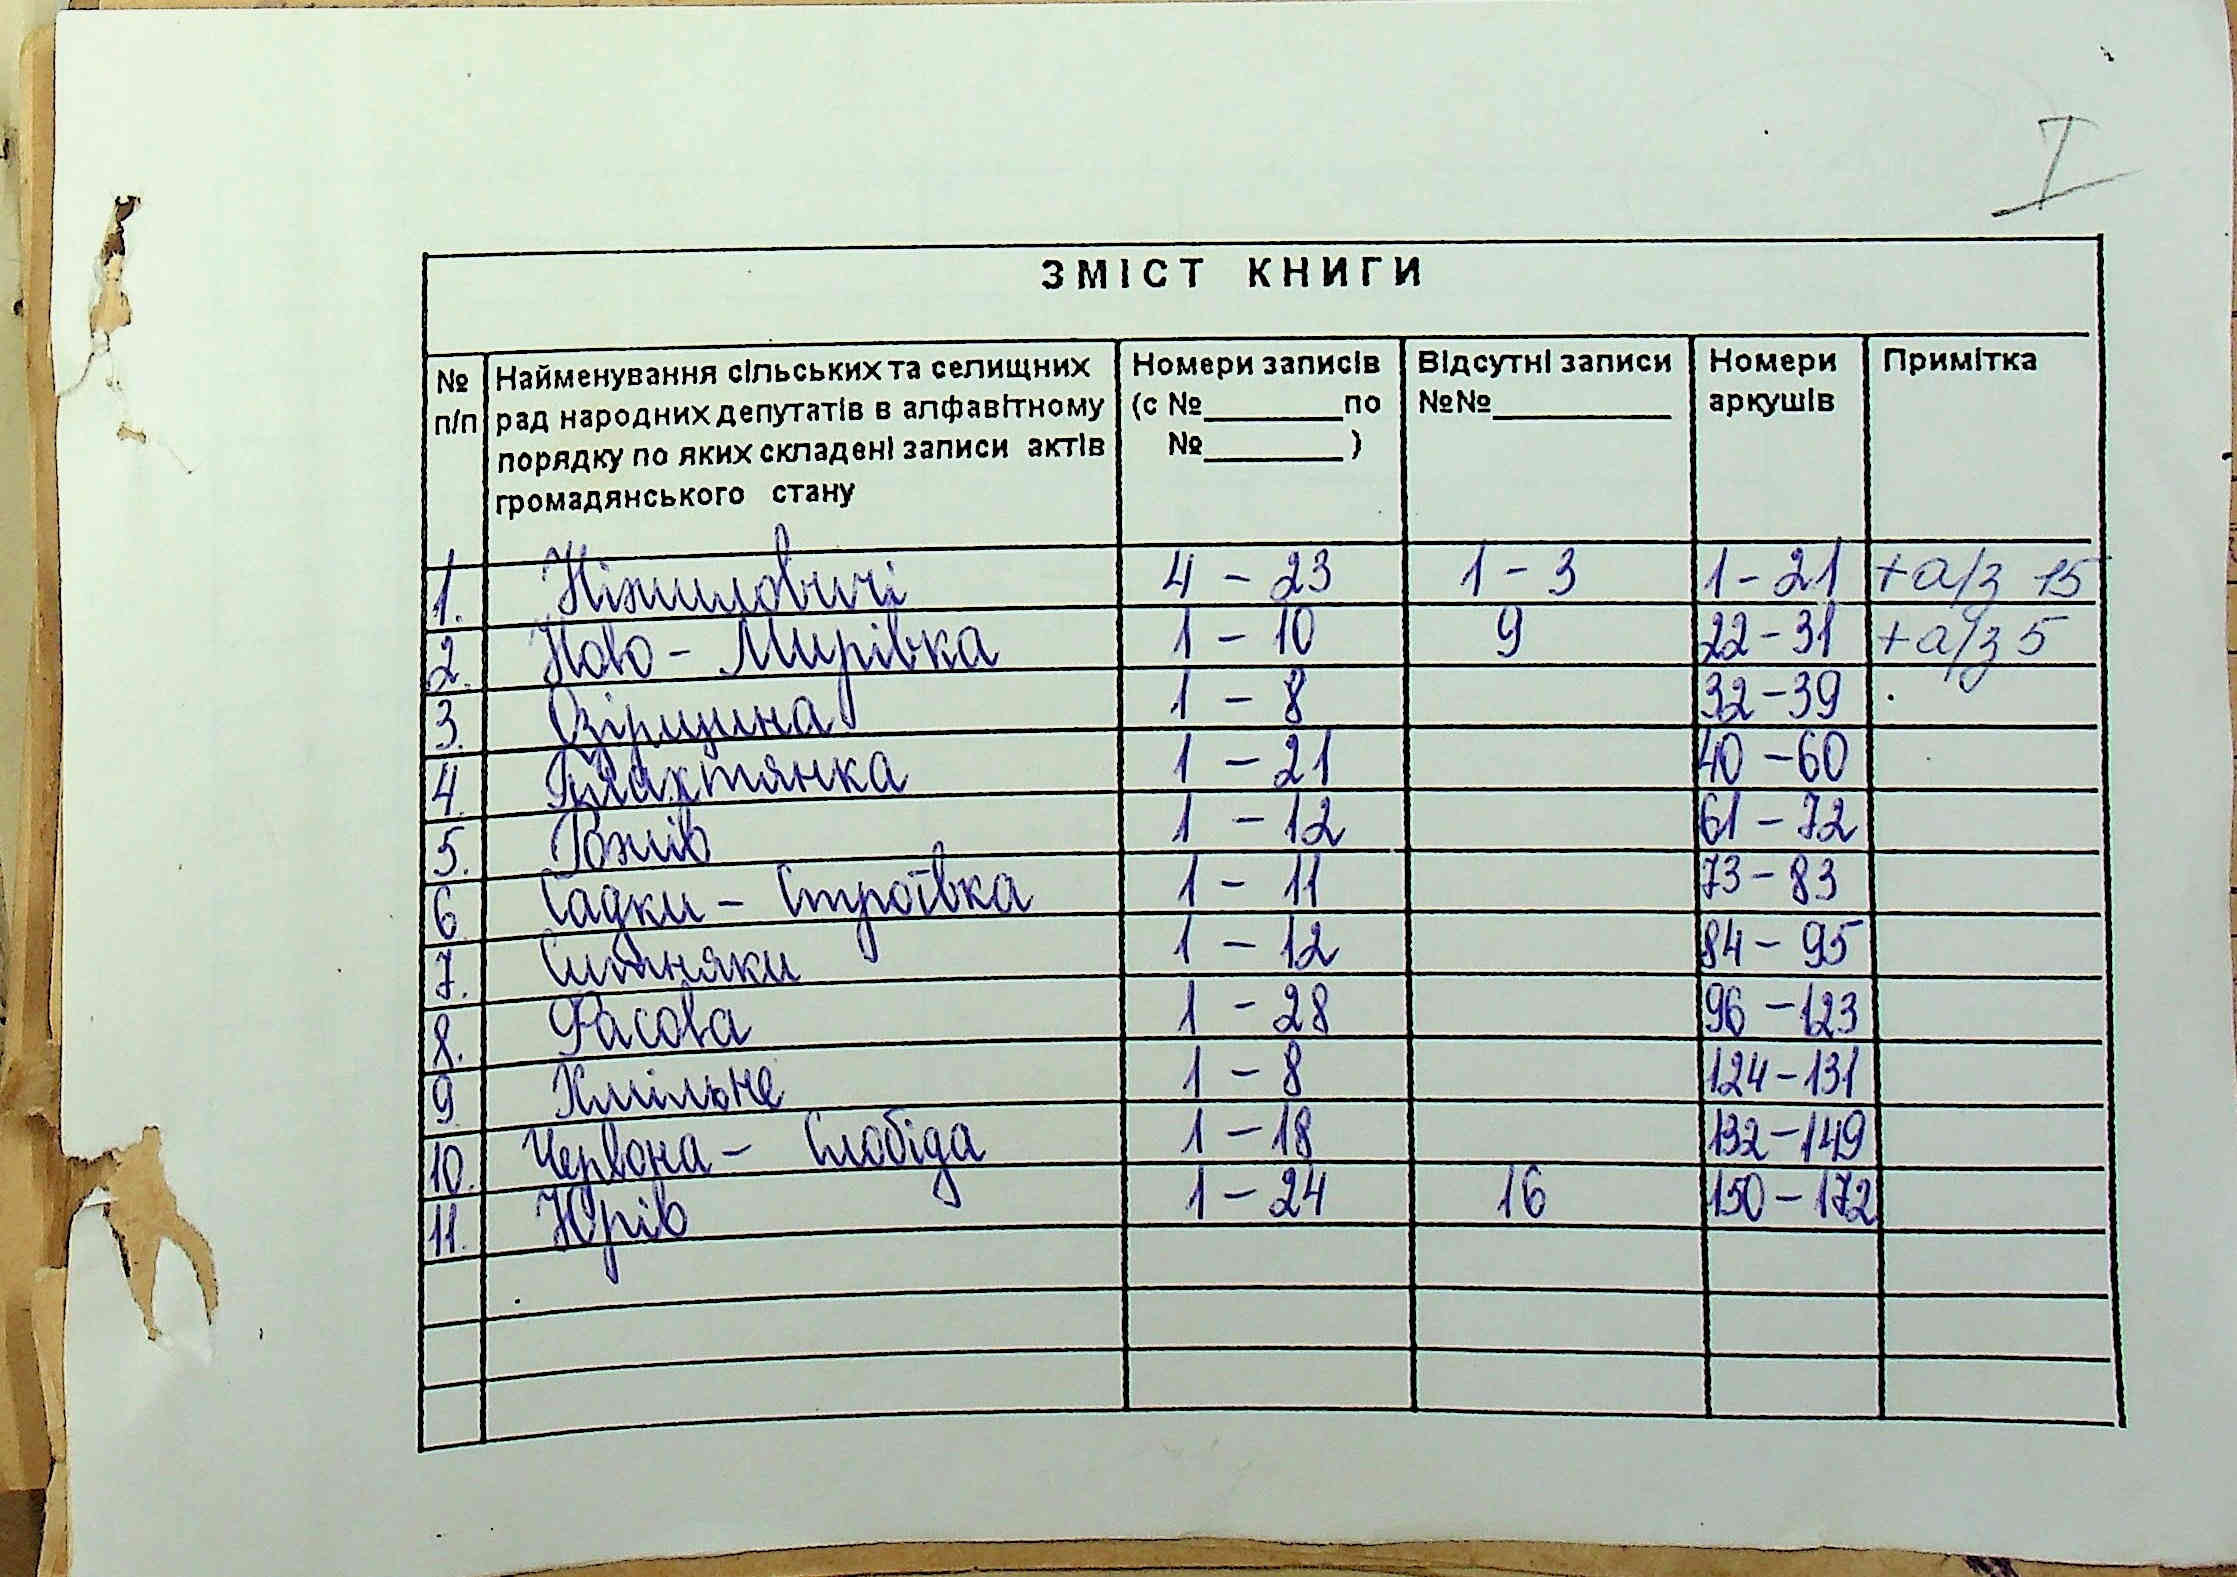 I
ЗМІСТ КНИГИ
№ п/п Найменування сільських та селищних рад народних депутатів в алфавітному порядку по яких складені записи актів громадянського стану Номери записів (с №________по №________) Відсутні записи №№__________ Номери аркушів Примітка
1. Ніжиловичі 4 - 23 1 - 3 1 - 21 +а/з 15
2. Ново - Мирівка 1 - 10 9 22 - 31 +а/з 5
3. Озірщина 1 - 8 32 - 39
4. Плахтянка 1 - 21 40 - 60
5. Рожів 1 - 12 61 - 72
6 Садки - Строївка 1 - 11 73 - 83
7. Ситняки 1 - 12 84 - 95
8. Фасова 1 - 28 96 - 123
9 Хмільне 1 - 8 124 - 131
10. Червона - Слобіда 1 - 18 132 - 149
11. Юрів 1 - 24 16 150 - 172